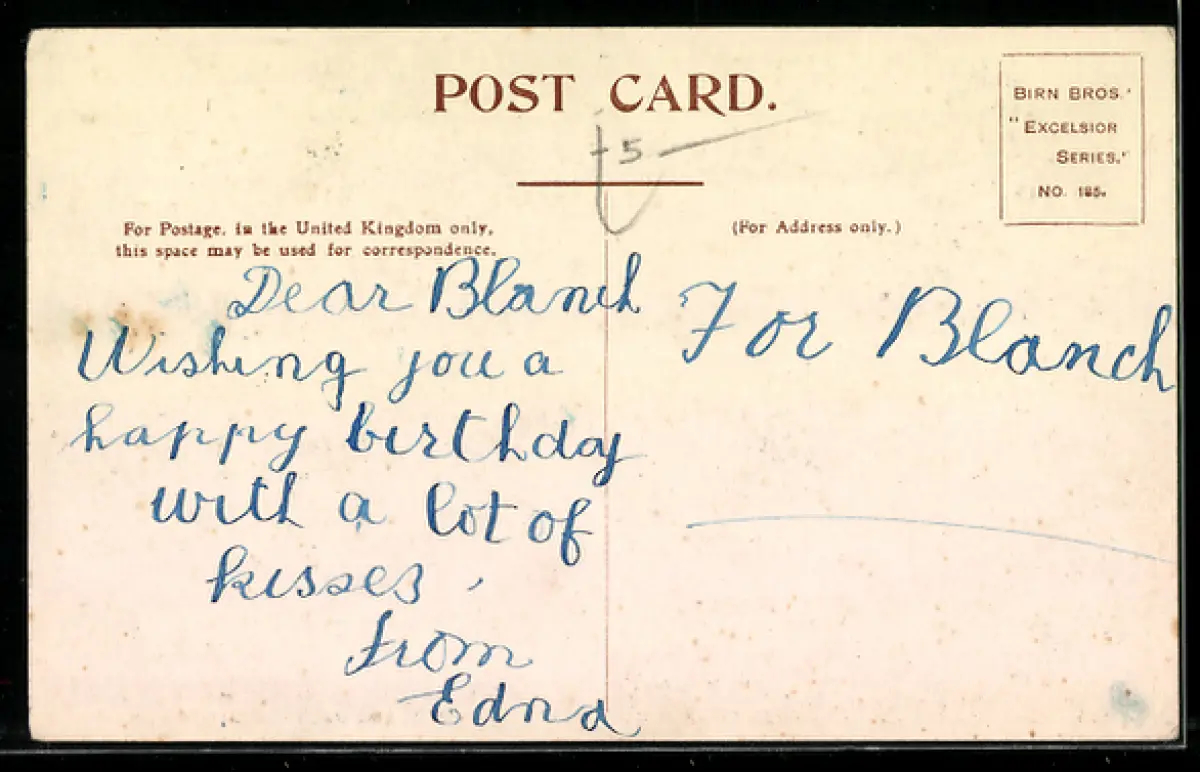 POST CARD.
BIRN BROS.'
"EXCELSIOR
SERIES."
NO. 185.
5
For Postage, in the United Kingdom only,
this space may be used for correspondence.
(For Address only.)
Dear Blanch
Wishing you a
happy birthday
with a lot of
kisses,
from
Edna
For Blanch